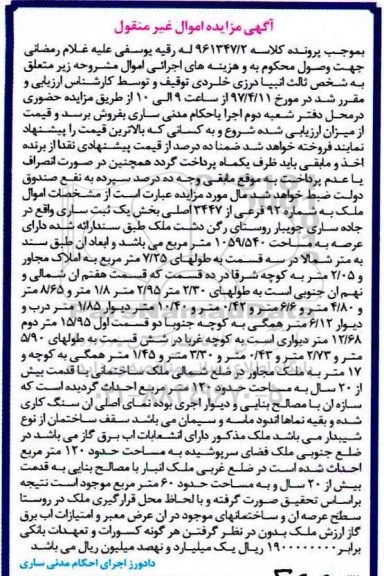 آگهی مزایده اموال غیر منقول
بموجب پرونده کلاسه ۹۶۱۳۴۷/۲ له رقیه یوسفی علیه غلام رمضانی
جهت وصول محکوم به و هزینه های اجرائی اموال مشروحه زیر متعلق
به شخص ثالث انبیا درزی خلردی توقیف و توسط کارشناس ارزیابی و
مقرر شد در مورخ ۹۷/۴/۱۱ از ساعت ۹ الی ۱۰ از طریق مزایده حضوری
درمحل دفتر شعبه دوم اجرا یاحکام مدنی ساری بفروش برسد و قیمت
از میزان ارزیابی شده شروع و به کسانی که بالاترین قیمت را پیشنهاد
نمایند فروخته خواهد شد ضمنا ده درصد از قیمت پیشنهادی نقدا از برنده
اخذ و مابقی باید ظرف یکماه پرداخت گردد همچنین در صورت انصراف
یا عدم پرداخت به موقع مابقی وجه ده درصد سپرده به نفع صندوق
دولت ضبط خواهد شد مال مورد مزایده عبارت است از مشخصات اموال
ملک به شماره ۹۲ فرعی از ۳۴۴۷ اصلی بخش یک ثبت ساری واقع در
جاده ساری جویبار روستای رگن دشت ملک طبق سندارائه شده دارای
عرصه به مساحت ۱۰۵۹/۵۴۰ متر مربع می باشد و ابعاد ان طبق سند
به متر شمالا در سه قسمت به طولهای ۷/۲۵ متر مربع به املاک مجاور
و ۲/۰۵ متر به کوچه شرقا در ده قسمت که قسمت هفتم ان شمالی و
نهم ان جنوبی است به طولهای ۲/۳۰ متر ۲/۹۵ متر ۱/۸ متر و ۸/۶۵ متر
و ۴/۸۰ متر و ۶/۶ متر و ۰/۴۲ متر و ۱۰/۴۰ متر دیوار ۷/۸۵ متر درب و
دیوار ۶/۱۲ متر همگی به کوچه جنوبا دو قسمت اول ۱۵/۹۵ متر دوم
۱۲/۶۸ متر دیواری است به کوچه غربا در شش قسمت به طولهای ۵/۹۰
متر و ۲/۷۳ متر و ۰/۴۳ متر و ۳/۳۰ متر و ۱/۴۵ متر همگی به کوچه و
۱۷ متر به ملک مجاور در ضلع شمالی ملک ساختمانی با قدمت بیش
از ۲۰ سال به مساحت حدود ۱۲۰ متر مربع احداث گردیده است که
سازه ان با مصالح بنایی و دیوار اجری بوده نمای اصلی ان سنگ کاری
شده و بقیه نماها اندود ماسه و سیمان می باشد سقف ساختمان از نوع
شیبدار می باشد ملک مذکور دارای انشعابات اب برق گاز می باشد در
ضلع جنوبی ملک فضای سرپوشیده به مساحت حدود ۱۲۰ متر مربع
احداث شده است در ضلع غربی ملک انبار با مصالح بنایی به قدمت
بیش از ۲۰ سال و به مساحت حدود ۶۰ متر مربع موجود است نتیجه
براساس تحقیق صورت گرفته و با لحاظ محل قرارگیری ملک در روستا
سطح عرصه ان و ساختمانهای موجود در ان عرض معبر و امتیازات اب برق
گاز ارزش ملک بدون در نظر گرفتن هر گونه کسورات و تعهدات بانکی
برابر ۱۹۰۰۰۰۰۰۰۰ ریال یک میلیارد و نهصد میلیون ریال می باشد
دادورز اجرای احکام مدنی ساری